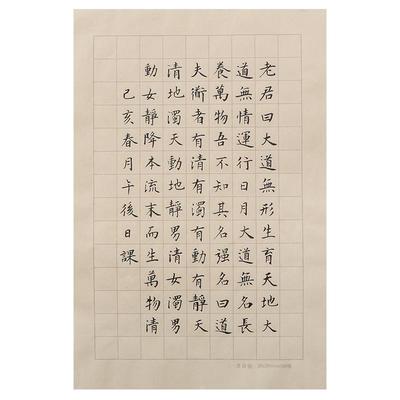 老君曰大道無形生育天地大
道無情運行日月大道無名長
養萬物吾不知其名强名曰道
夫術者有清有濁有動有靜天
清地濁天動地靜男清女濁男
動女靜降本流末而生萬物清
己亥春月午後日課